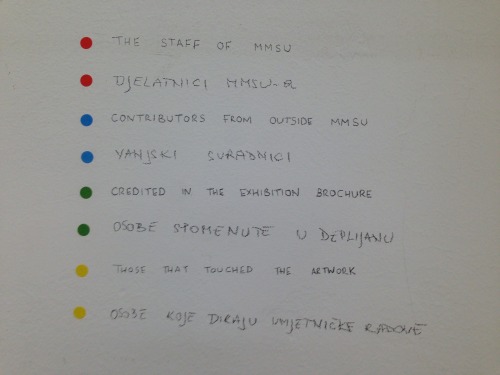 THE STAFF OF MMSU
DJELATNICI MMSU-a
CONTRIBUTORS FROM OUTSIDE MMSU
VANJSKI SURADNICI
CREDITED IN THE EXHIBITION BROCHURE
OSOBE SPOMENUTE U DEPLIJANU
THOSE THAT TOUCHED THE ARTWORK
OSOBE KOJE DIRAJU UMJETNIČKE RADOVE